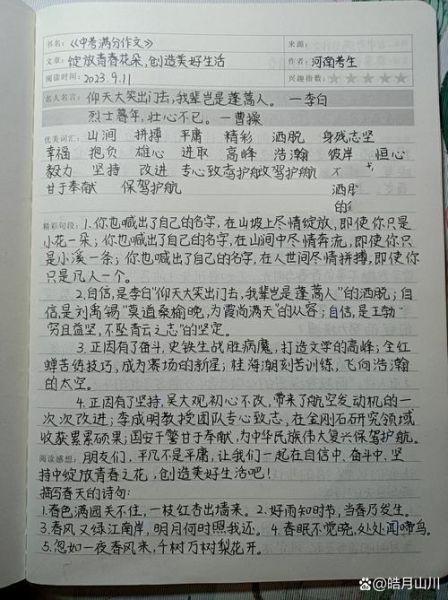 书名:《中考满分作文》 来源:
文章: 绽放青春花朵,创造美好生活 作者: 河南考生
阅读时间: 2023.9.11 兴趣指数: ★★★★★
名人名言: 仰天大笑出门去,我辈岂是蓬蒿人。 —李白
烈士暮年,壮心不已。—曹操
优美词汇: 山涧 拼搏 平庸 精彩 洒脱 身残志坚
幸福 抱负 雄心 进取 高峰 浩瀚 彼岸 恒心
毅力 坚持 改进 专心致志
甘于奉献 保驾护航 洒脱
的
精彩句段: 1.你也喊出了自己的名字,在山坡上尽情绽放,即使你只是
小花一朵;你也喊出了自己的名字,在山间中尽情奔流,即使你只
是小溪一条;你也喊出了自己的名字,在人世间尽情拼搏,即使你
只是凡人一个。
2.自信,是李白“仰天大笑出门去,我辈岂是蓬蒿人”的洒脱;自
信是刘禹锡“莫道桑榆晚,为霞尚满天”的从容;自信,是王勃
“穷且益坚,不坠青云之志”的坚定。
3.正因有了奋斗,史铁生战胜病魔,打造文学的高峰;全红
蝉苦练技巧,成为赛场的新星;桂海潮刻苦训练,飞向浩瀚
的太空。
4.正因有了坚持,吴大观初心不改,带来了航空发动机的一
次次改进;李成明教授团队专心致志,在金刚石研究领域
收获累累硕果;国安干警甘于奉献,为中华民族伟大复兴保驾护航。
阅读感想: 朋友们,平凡不是平庸,让我们一起在自信中、奋斗中、坚
持中绽放青春之花,创造美好生活吧!
描写春天的诗句:
1.春色满园关不住,一枝红杏出墙来。2.好雨知时节,当春乃发生。
3.春风又绿江南岸,明月何时照我还。4.春眠不觉晓,处处闻啼鸟。
5.忽如一夜春风来,千树万树梨花开。
@皓月山川